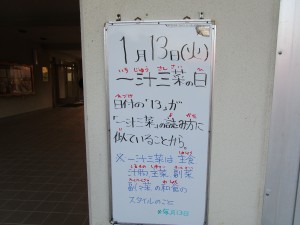 1月13日(火)
いちじゅうさんさい
一汁三菜の日
日付の'13'が
「一汁三菜」の読み方に
似ていることから。
※一汁三菜は主食
副菜の和食の
スタイルのこと